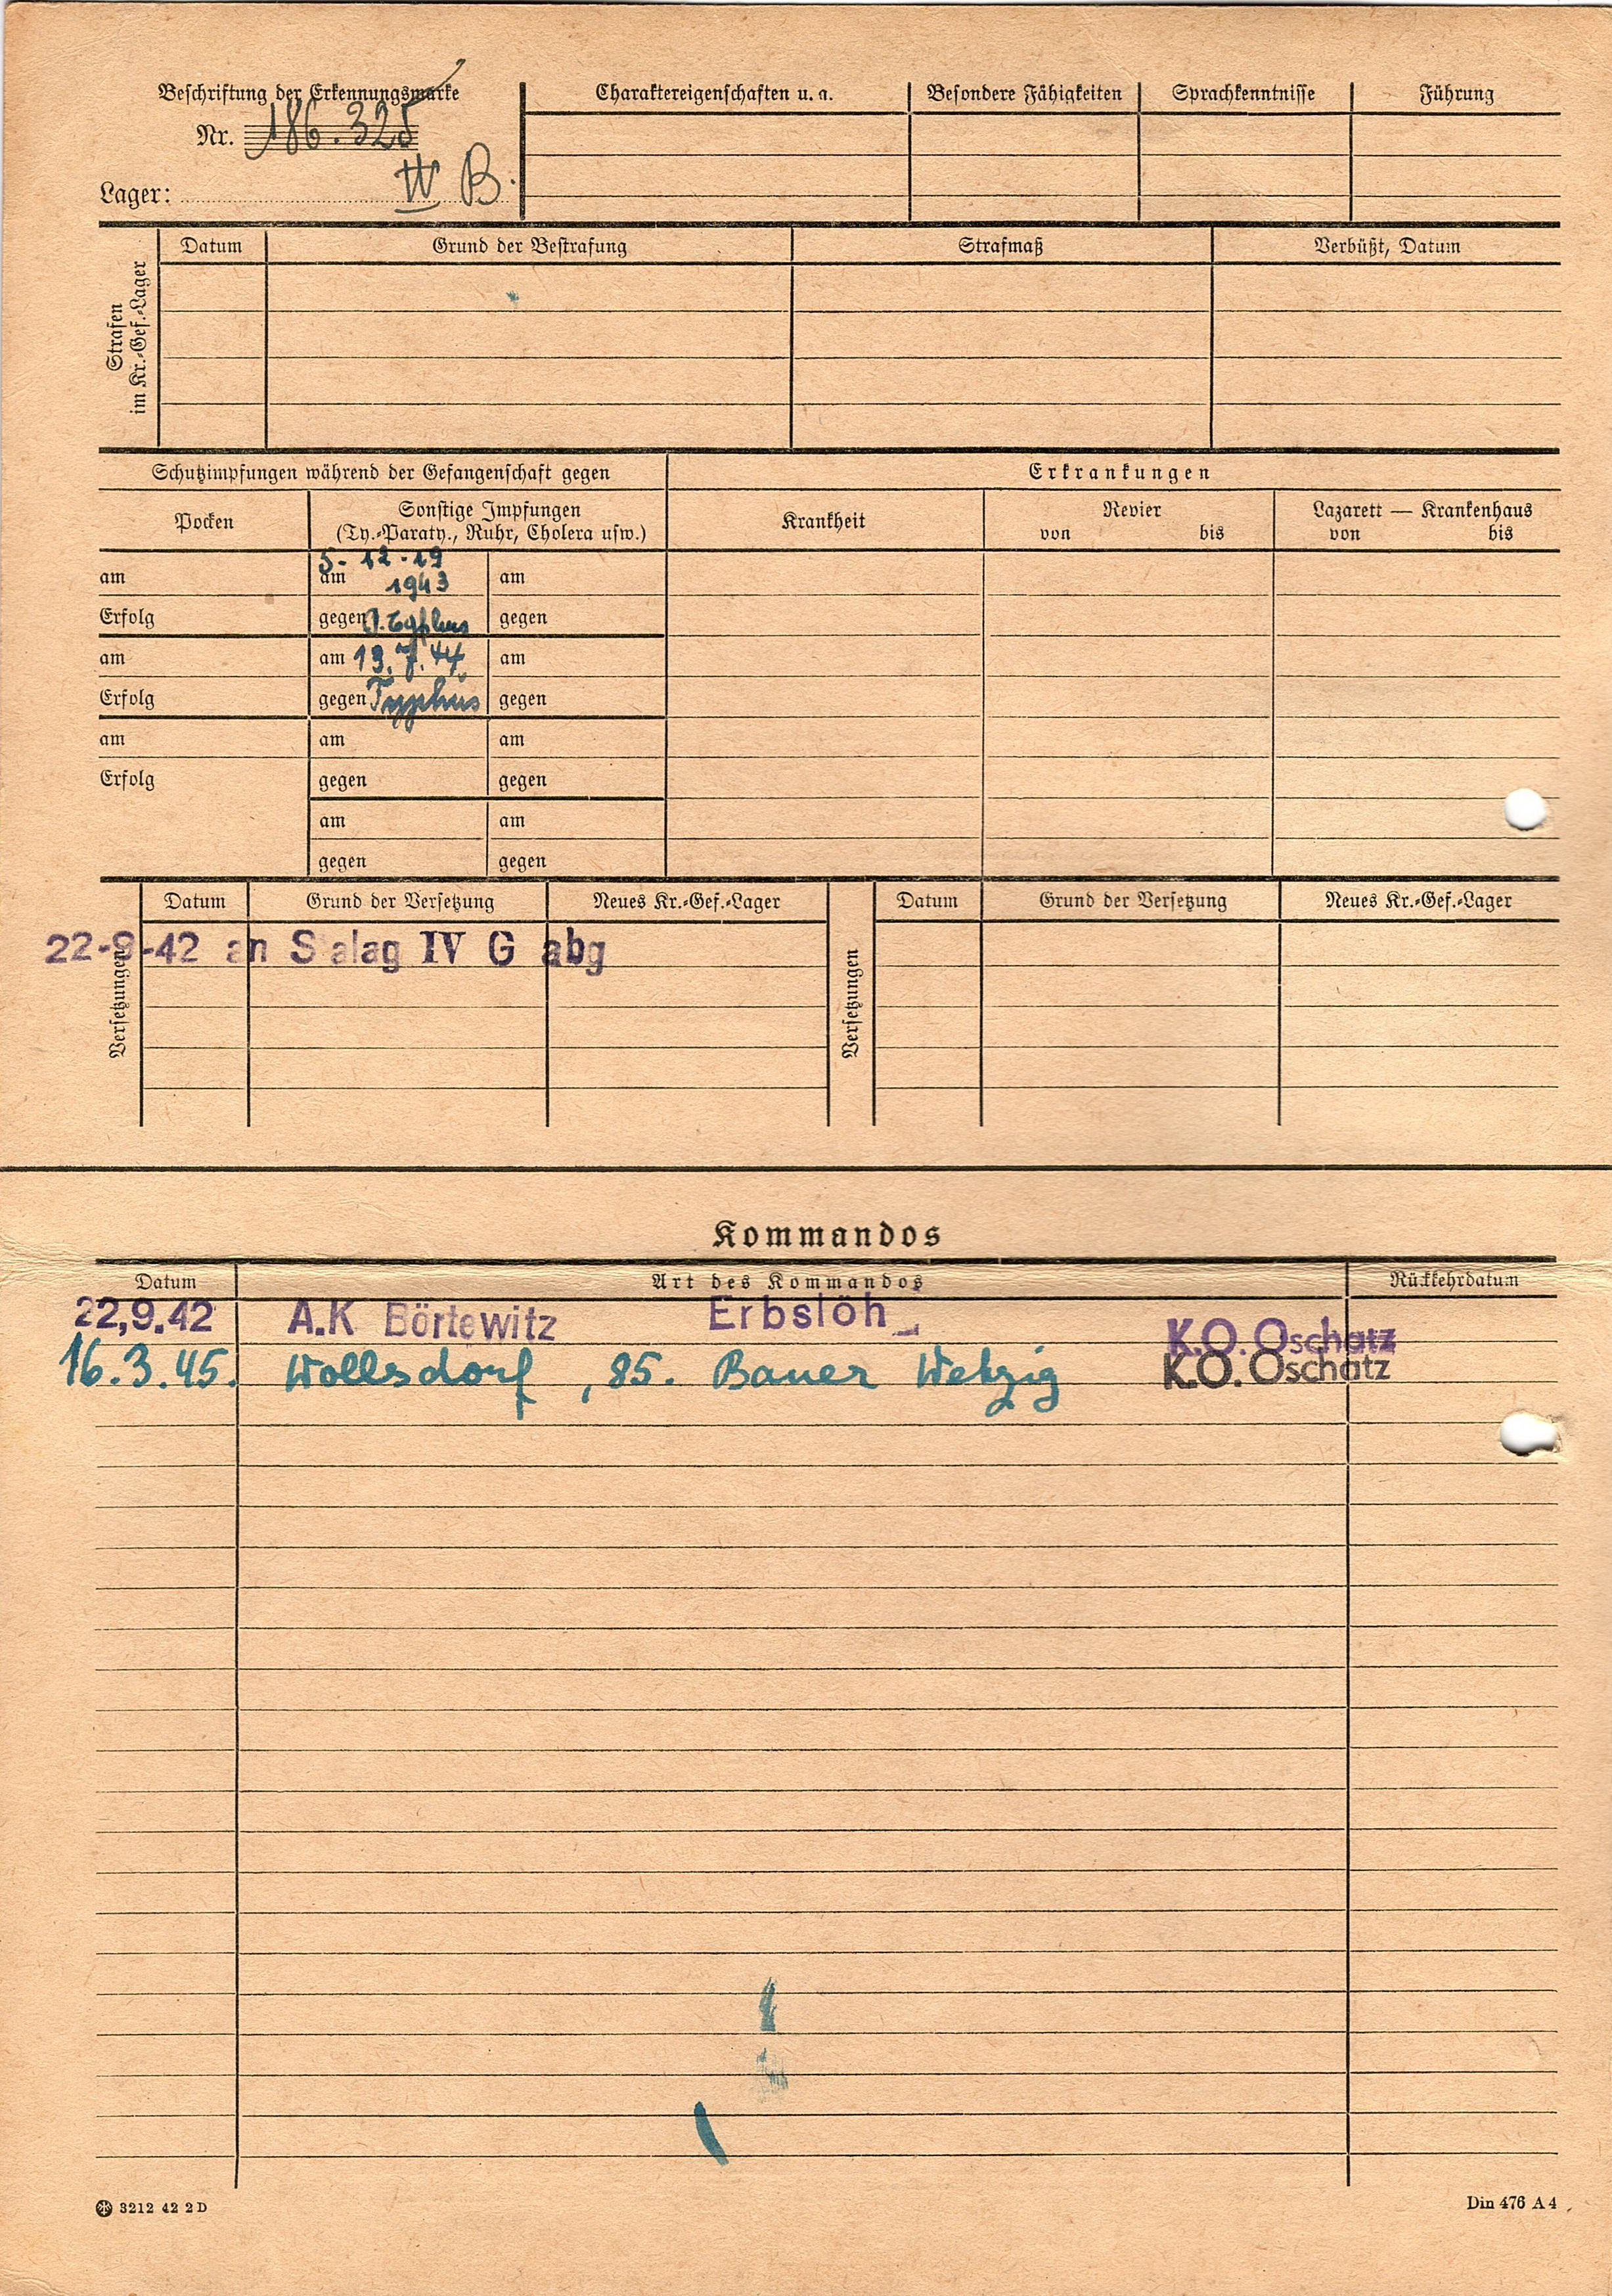 Beschriftung der Erkennungsmarke
Nr. 186.325
Lager: IV B.
Charaktereigenschaften u. a. Besondere Fähigkeiten Sprachkenntnisse Führung
Strafen im Kr.-Gef.-Lager
Datum Grund der Bestrafung Strafmaß Verbüßt, Datum
Schutzimpfungen während der Gefangenschaft gegen Erkrankungen
Pocken Sonstige Impfungen Krankheit Revier Lazarett — Krankenhaus
(Ty.-Paraty., Ruhr, Cholera usw.) von bis von bis
5-12-19
am am 1943 am
Erfolg gegen Typhus gegen
am am 13.7.44 am
Erfolg gegen Typhus gegen
am am am
Erfolg gegen gegen
am am
gegen gegen
Versetzungen Datum Grund der Versetzung Neues Kr.-Gef.-Lager Versetzungen Datum Grund der Versetzung Neues Kr.-Gef.-Lager
22-9-42 an S alag IV G abg
Kommandos
Datum Art des Kommandos Rückkehrdatum
22,9.42 A.K Börtewitz Erbslöh K.O. Oschatz
16.3.45. Wollsdorf, 85. Bauer Wetzig K.O. Oschatz
3212 42 2 D Din 476 A 4